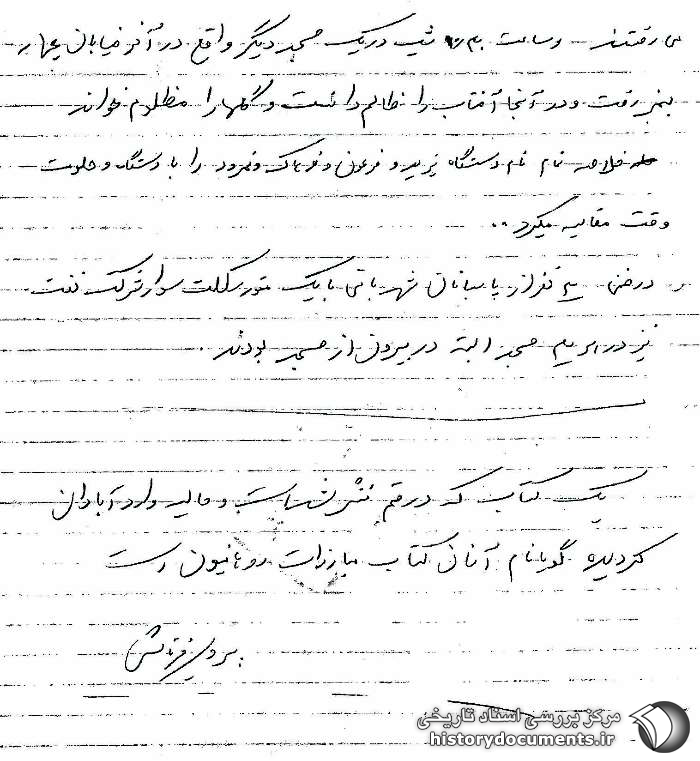 می رفتند - و ساعت ۹ شب در یک مسجد دیگر واقع در آخر خیابان
بمنبر رفت و در آنجا آفتاب را ظالم دانست و گلها را مظلوم خواند
خلاصه تمام دستگاه یزید و فرعون و ضحاک و نمرود را با دستگاه و حکومت
وقت مقایسه میکرد ..
در ضمن سه نفر از پاسبانان شهربانی با یک متورسکلت سوار شرکت نفت
نیز در مسجد البته در بیرون از مسجد بودند .
یک کتاب که در قم نشر شده است و حالیه وارد آبادان
گردیده گویا نام آنان کتاب مبارزات روحانیون است
مرکز بررسی اسناد تاریخی
historydocuments.ir